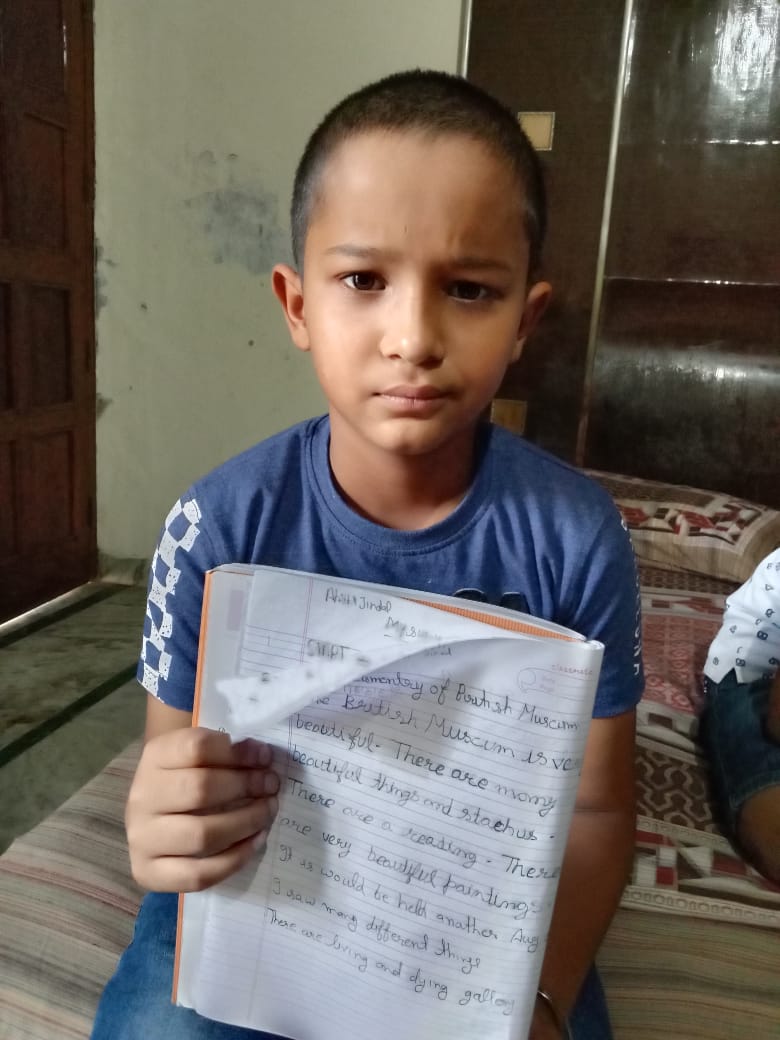 Jindal
SMPT
classmate
Date
Page
of British Muscum
British Muscum is ve
beautiful. There are many
beautiful things and stachus.
There are a reading. There
are very beautiful paintings
It is would be held another Aug
I saw many different things
There are living and dying gallory